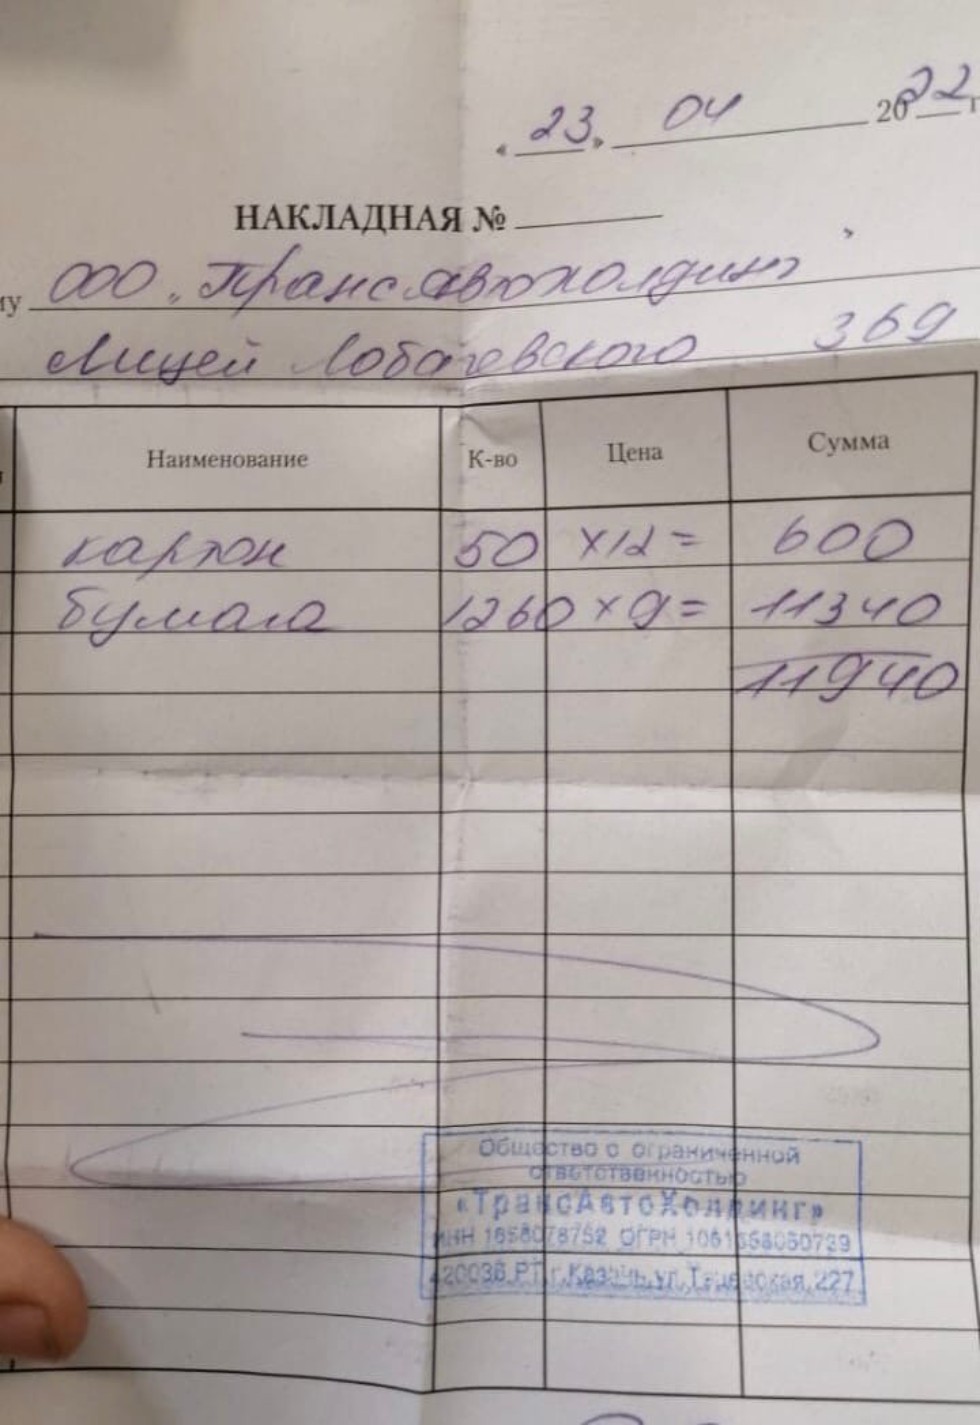 « 23 » 04 2022 г
НАКЛАДНАЯ №
му ООО „Трансавтохолдинг"
Лицей Лобачевского 369
Наименование К-во Цена Сумма
картон 50 х12= 600
бумага 1260 х9= 11340
11940
Общество с ограниченной
ответственностью
«ТрансАвтоХолдинг»
ИНН 1658078752 ОГРН
420036 РТ, г.Казань, ул. 227